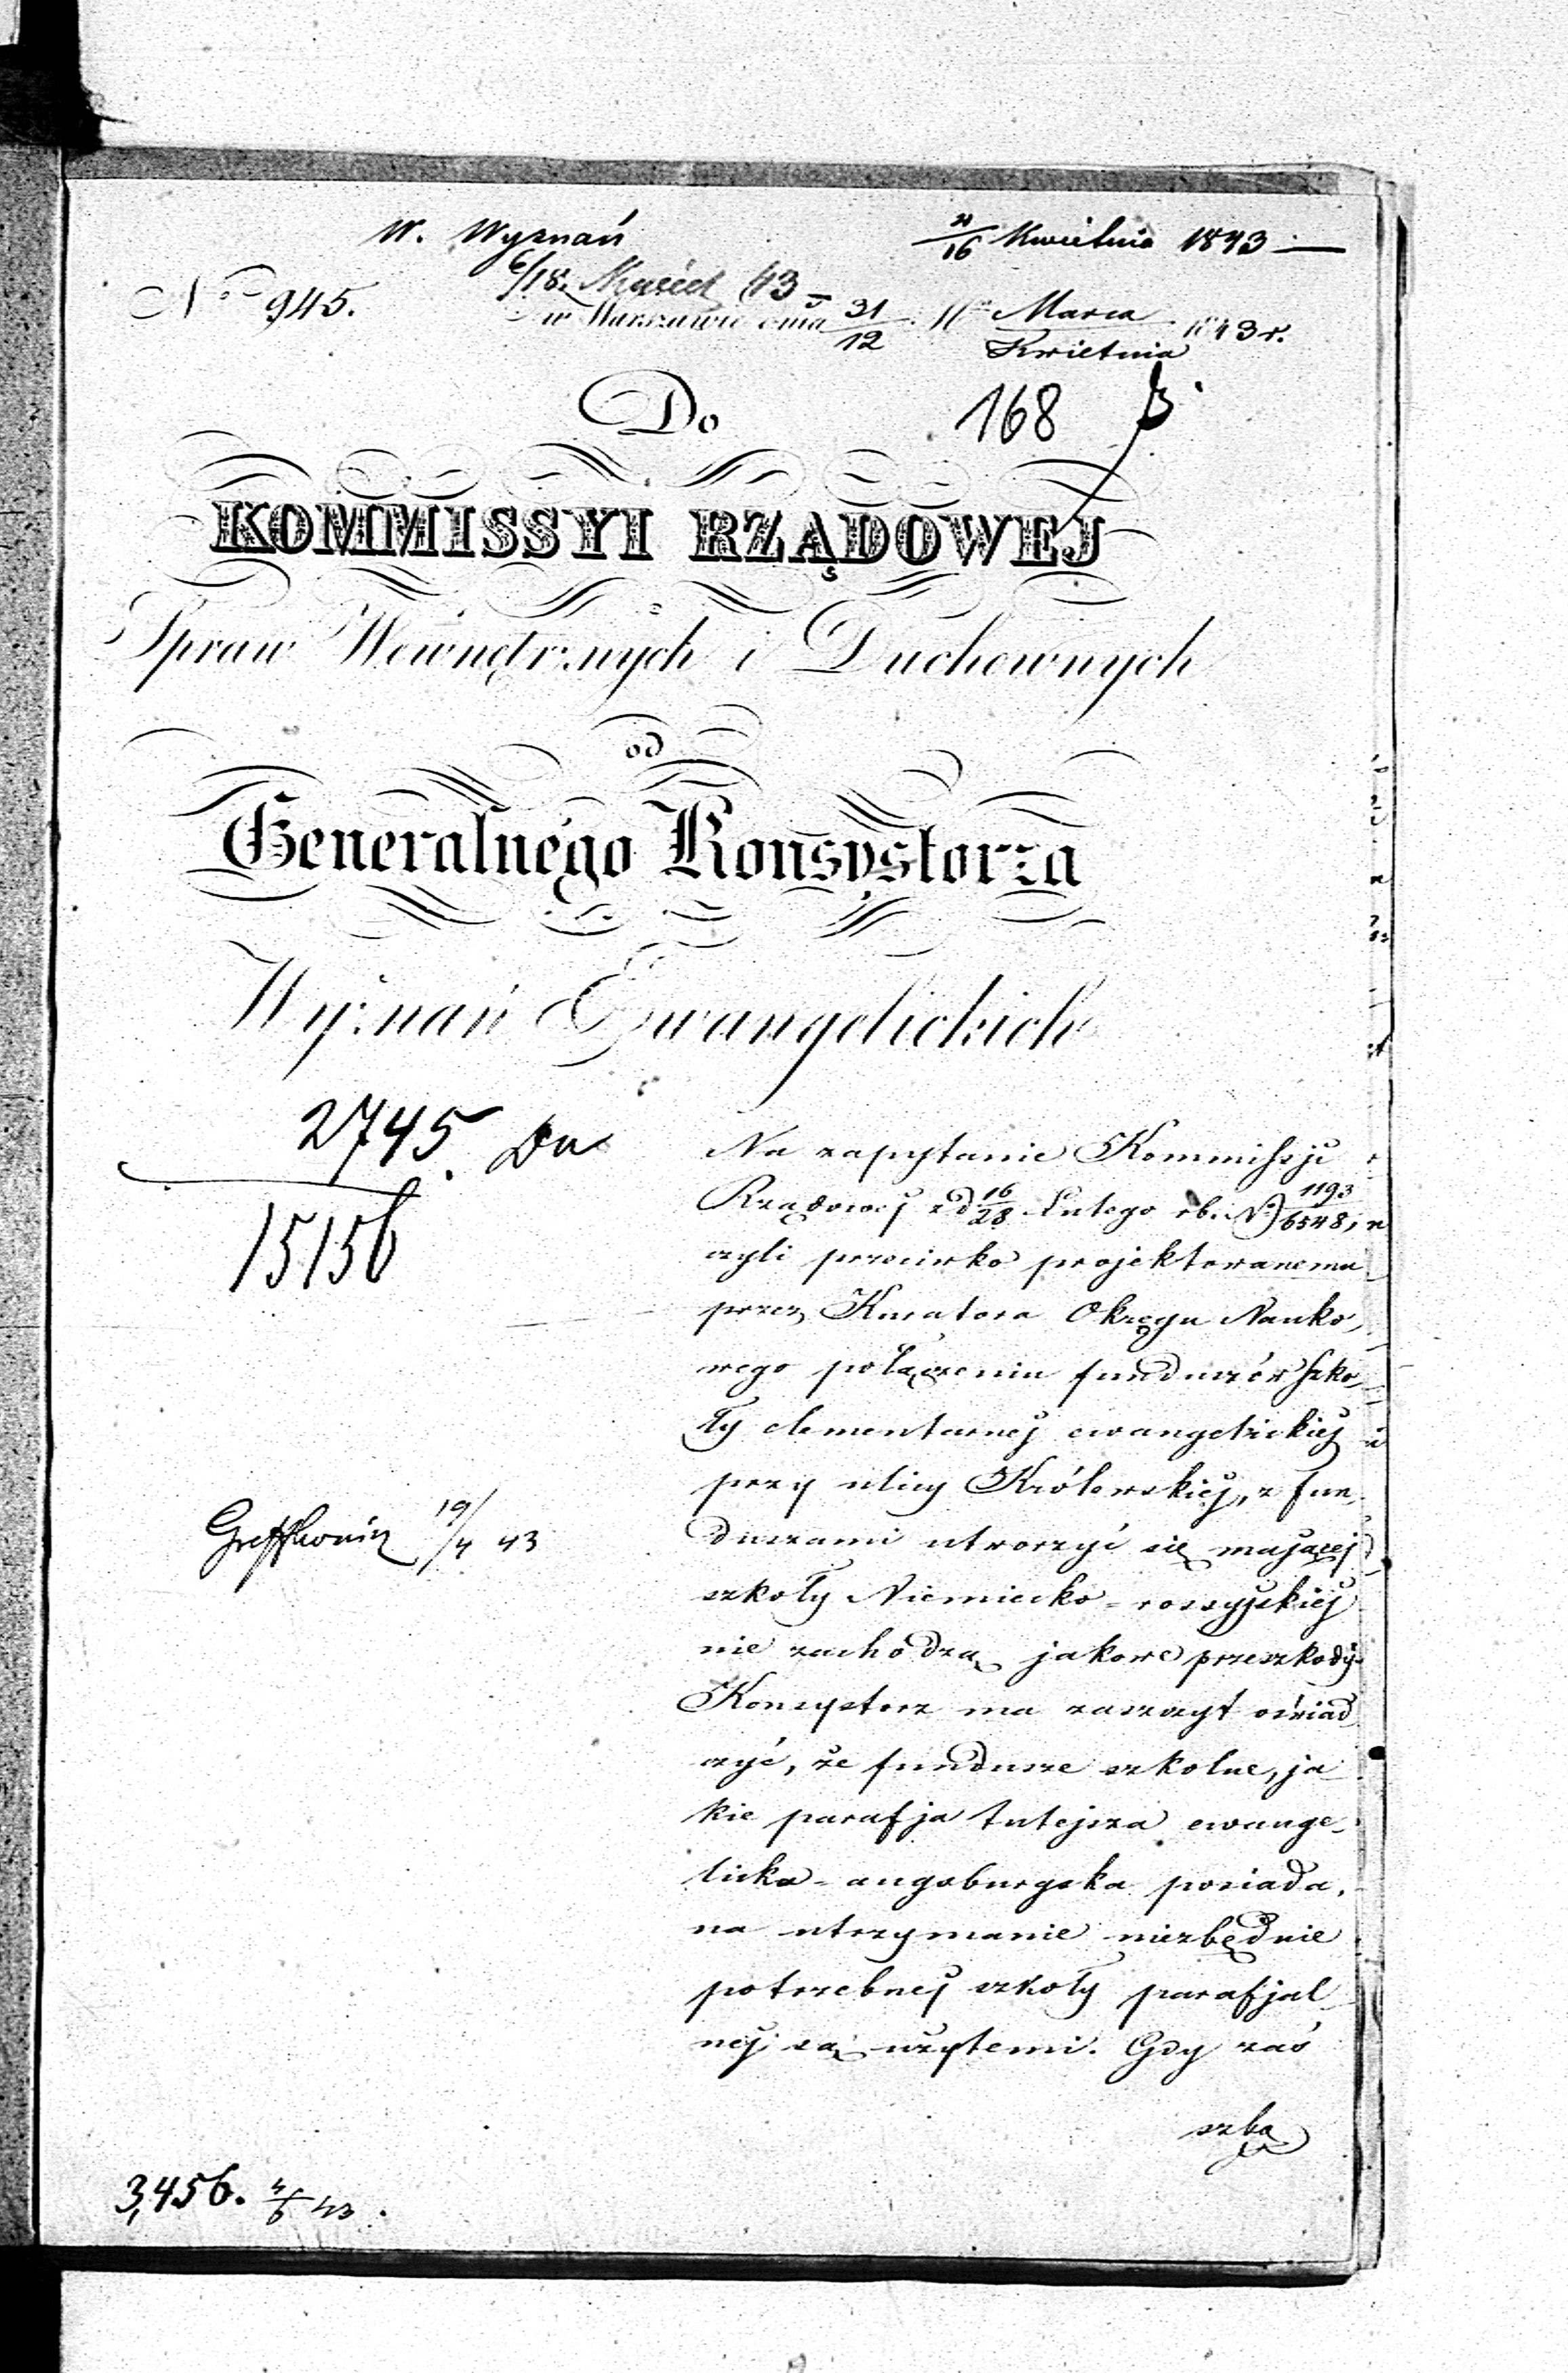 W. Wyznań
4/16 Kwietnia 1843
6/18. 43
No 945.
w Warszawie dnia 31/12 Marca/Kwietnia 1843 r.
Do
168
KOMMISSYI RZĄDOWEJ
Spraw Wewnętrznych i Duchownych
od
Generalnégo Konsystorza
Wyznań Ewangelickich
2745.
15156
Na zapytanie Kommissji
Rządowej z d 16/28 Lutego rb. No 1193/6548,
czyli przeciwko projektowanemu
przez Kuratora Okręgu Nauko-
wego połączeniu funduszów szko-
ły elementarnej ewangelickiej
przy ulicy Królewskiej, z fun-
duszami utworzyć się mającej
szkoły Niemiecko-rossyjskiej
nie zachodzą jakowe przeszkody
Konsystorz ma zaszczyt oświad
czyć, że fundusze szkolne, ja
kie parafja tutejsza ewange-
licko-augsburgska posiada,
na utrzymanie niezbędnie
potrzebnej szkoły parafjal
nej są użytemi. Gdy zaś
19/4 43
3,456. 4/6 43.